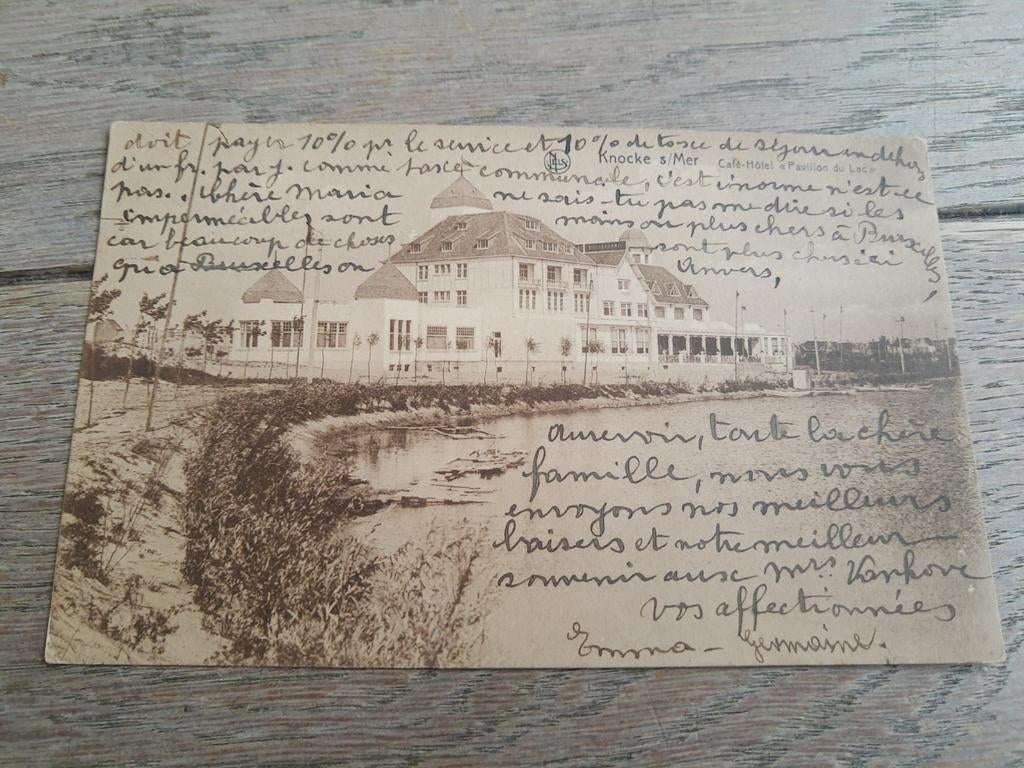 doit payer 10% pr le service et 10% de taxe de séjour en dehors
NELS
Knocke s/Mer Café-Hôtel «Pavillon du Lac»
d'un fr. par j. comme taxe communale, c'est énorme n'est-ce
pas. Chère Maria ne sais-tu pas me dire si les
imperméables sont moins ou plus chers à Bruxelles,
car beaucoup de choses sont plus chers ici
qu'a Bruxelles ou Anvers,
Aurevoir, toute la chère
famille, nous vous
envoyons nos meilleurs
baisers et notre meilleur
souvenir aux Mrs Vanhove
vos affectionnées
Emma - Germaine.